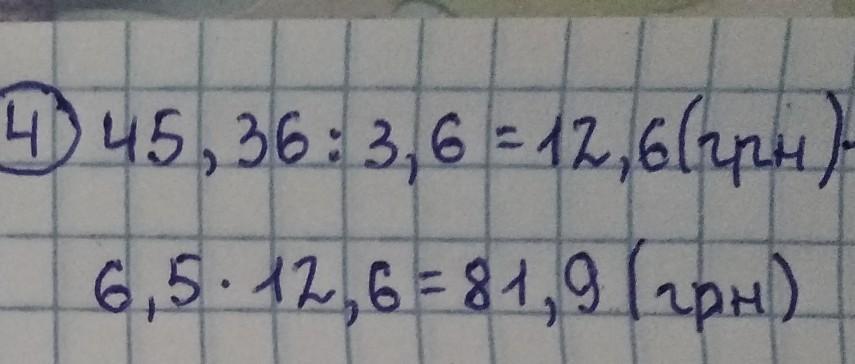 4) 45,36 : 3,6 = 12,6 (грн)-
6,5 · 12,6 = 81,9 (грн)